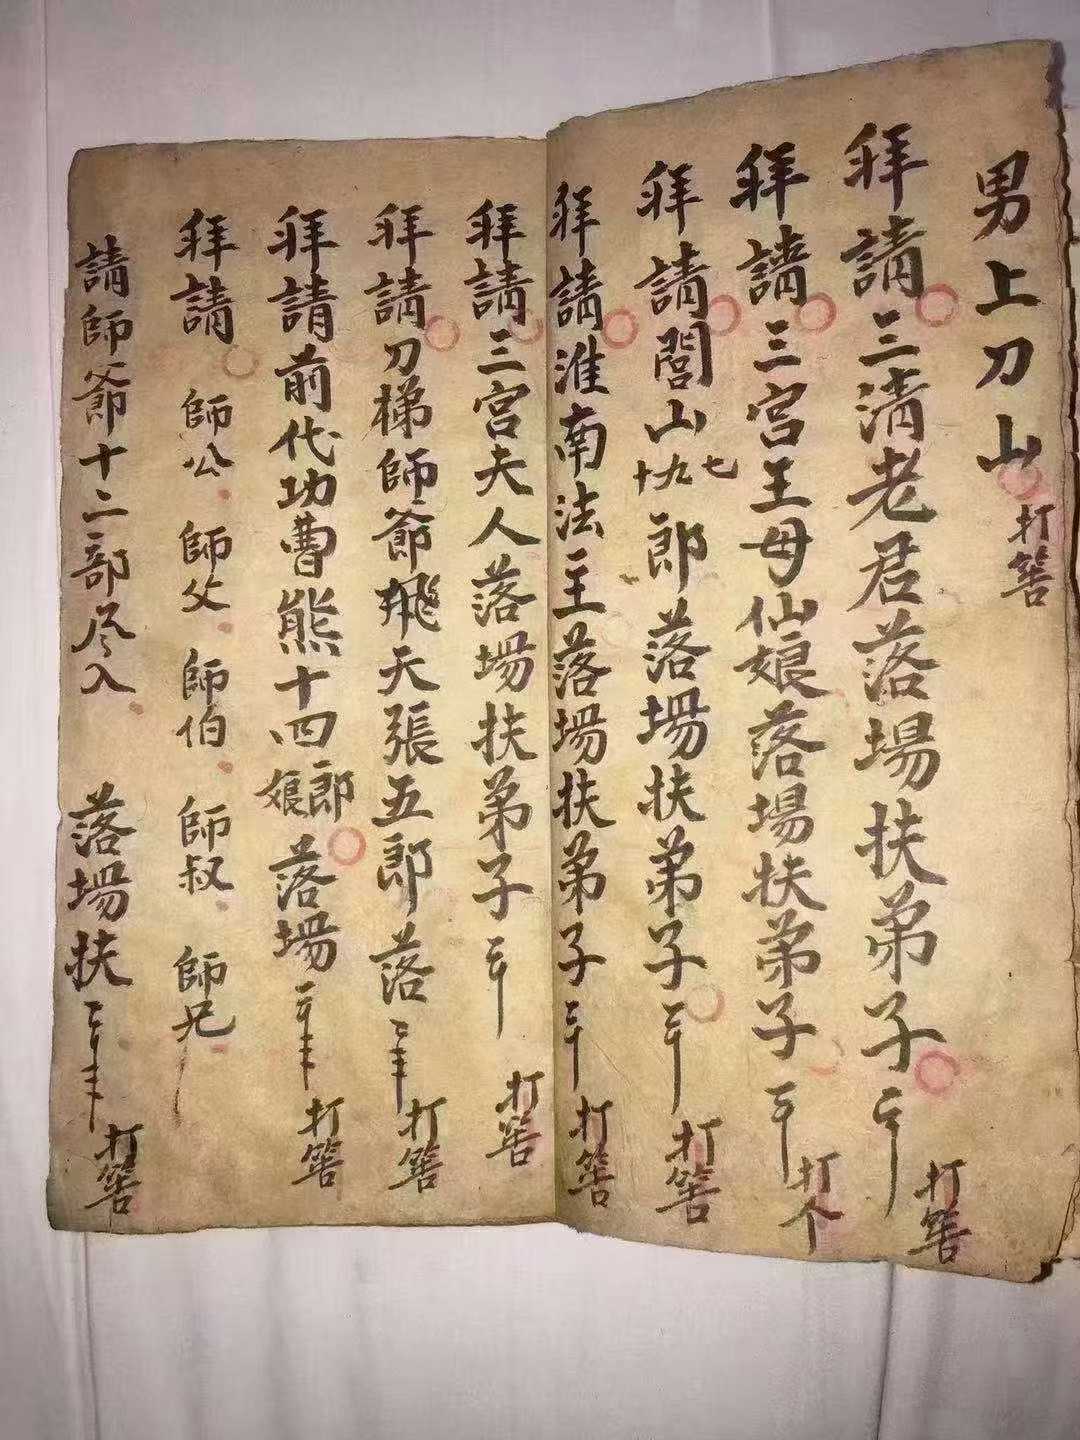 男上刀山 打筶
拜請三清老君落場扶弟子 打筶
拜請三宮王母仙娘落場扶弟子 打个
拜請閭山七九十郎落場扶弟子 打筶
拜請淮南法主落場扶弟子 打筶
拜請三宮夫人落場扶弟子 打筶
拜請刀梯師爺飛天張五郎落 打筶
拜請前代功曹熊十四郎娘落場 打筶
拜請 師公 師父 師伯 師叔 師兄
請師爺十二部尽入 落場扶 打筶